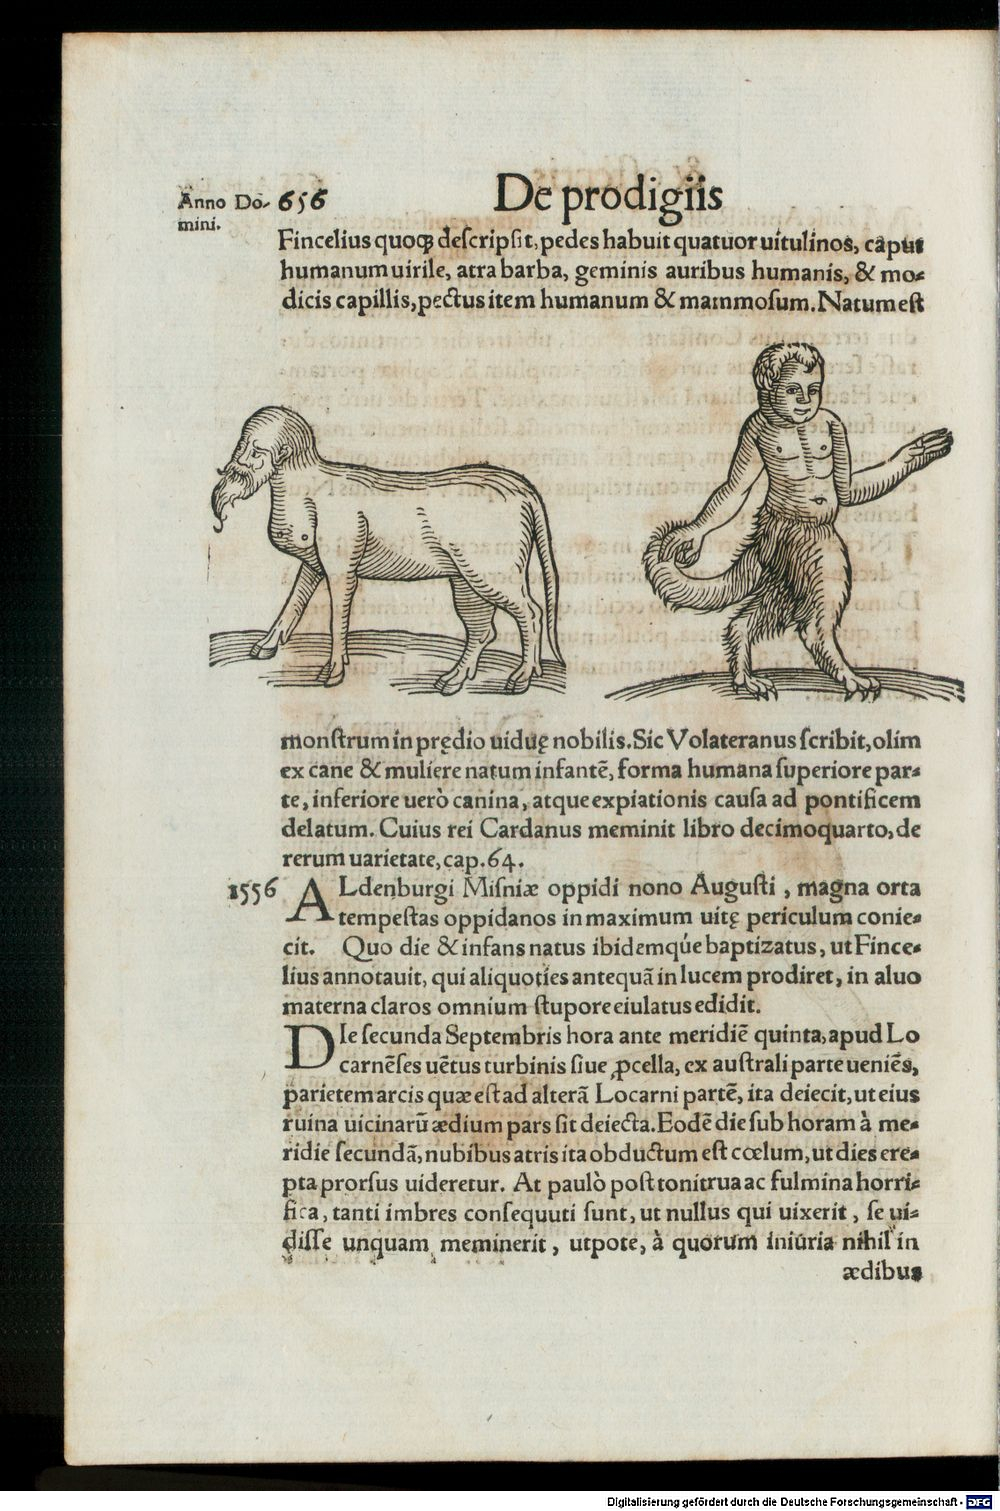 Anno Do- 656 De prodigiis
mini.
Fincelius quoqꝫ descripsit, pedes habuit quatuor uitulinos, caput
humanum uirile, atra barba, geminis auribus humanis, & mo-
dicis capillis, pectus item humanum & mammosum. Natum est
monstrum in prędio uiduę nobilis. Sic Volateranus scribit, olim
ex cane & muliere natum infantē, forma humana superiore par-
te, inferiore uerò canina, atque expiationis causa ad pontificem
delatum. Cuius rei Cardanus meminit libro decimoquarto, de
rerum uarietate, cap. 64.
1556 ALdenburgi Misniæ oppidi nono Augusti, magna orta
tempestas oppidanos in maximum uitę periculum conie-
cit. Quo die & infans natus ibidemq́ue baptizatus, ut Fince-
lius annotauit, qui aliquoties antequā in lucem prodiret, in aluo
materna claros omnium stupore eiulatus edidit.
DIe secunda Septembris hora ante meridiē quinta, apud Lo
carnēses uētus turbinis siue ꝓcella, ex australi parte ueniēs,
parietem arcis quæ est ad alterā Locarni partē, ita deiecit, ut eius
ruina uicinarū ædium pars sit deiecta. Eodē die sub horam à me-
ridie secundā, nubibus atris ita obductum est cœlum, ut dies ere-
pta prorsus uideretur. At paulò post tonitrua ac fulmina horri-
fica, tanti imbres consequuti sunt, ut nullus qui uixerit, se ui-
disse unquam meminerit, utpote, à quorum iniuria nihil in
ædibus
Digitalisierung gefördert durch die Deutsche Forschungsgemeinschaft - DFG